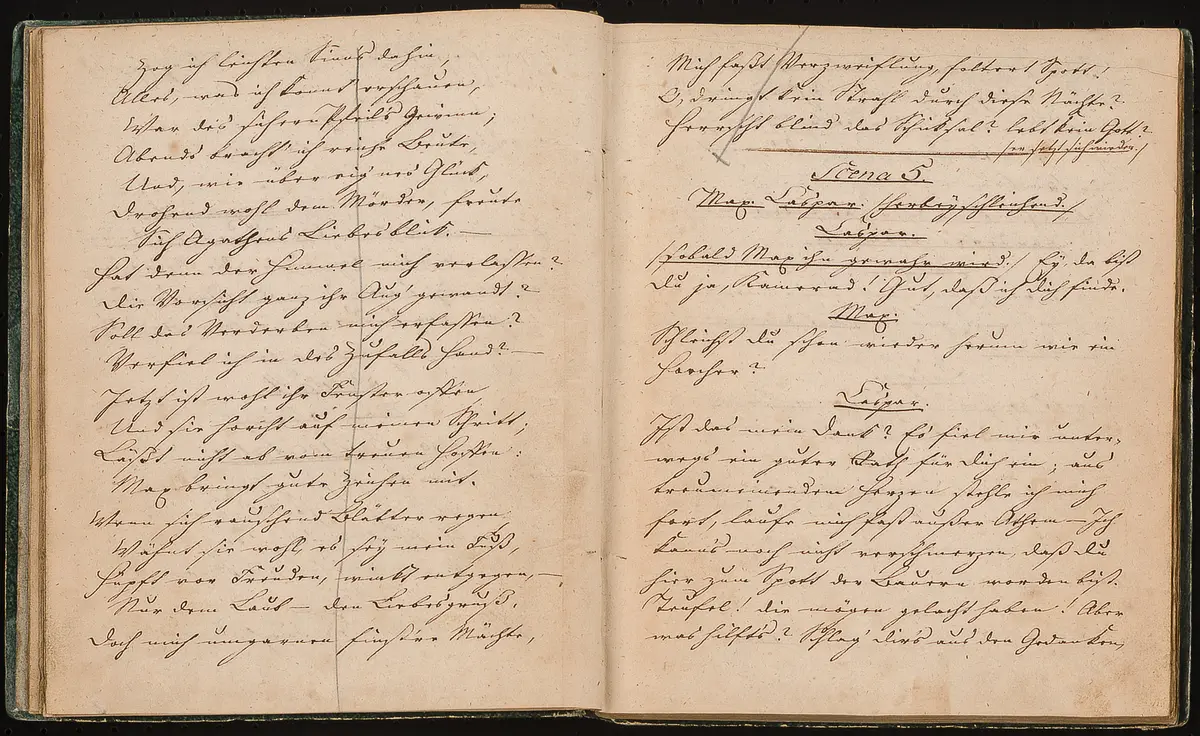 Zog ich leichten Sinns dahin,
Alles, was ich konnt' erschauen,
War des sichern Pfeils Gewinn;
Abends bracht' ich reiche Beute,
Und, wie über eig'nes Glück,
Drohend wohl dem Mörder, freute
Sich Agathens Liebesblick. —
Hat denn der Himmel mich verlassen?
Die Vorsicht ganz ihr Aug' gewandt?
Soll das Verderben mich erfassen?
Verfiel ich in des Zufalls Hand? —
Jetzt ist wohl ihr Fenster offen,
Und sie horcht auf meinen Schritt,
Läßt nicht ab vom treuen Hoffen:
Max bringt gute Zeichen mit.
Wenn sich rauschend Blätter regen,
Wähnt sie wohl, es sey mein Fuß,
Hüpft vor Freuden, winkt entgegen, —
Nur dem Laub — den Liebesgruß.
Doch mich umgarnen finstre Mächte,
Mich faßt Verzweiflung, foltert Spott!
O, dringt kein Strahl durch diese Nächte?
Herrscht blind das Schicksal? lebt kein Gott?
/er setzt sich wieder./
Scena 5.
Max. Caspar. /herbeyschleichend./
Caspar.
/sobald Max ihn gewahr wird./ Ey, da bist
du ja, Kamerad! Gut, daß ich dich finde.
Max.
Schleichst du schon wieder herum wie ein
Horcher?
Caspar.
Ist das mein Dank? Es fiel mir unter-
wegs ein guter Rath für dich ein; aus
treumeinendem Herzen stehle ich mich
fort, laufe mich fast außer Athem — Ich
kanns noch nicht verschmerzen, daß du
hier zum Spott der Bauern worden bist.
Teufel! die mögen gelacht haben! Aber
was hilft's? Schlag' dir's aus den Gedanken,